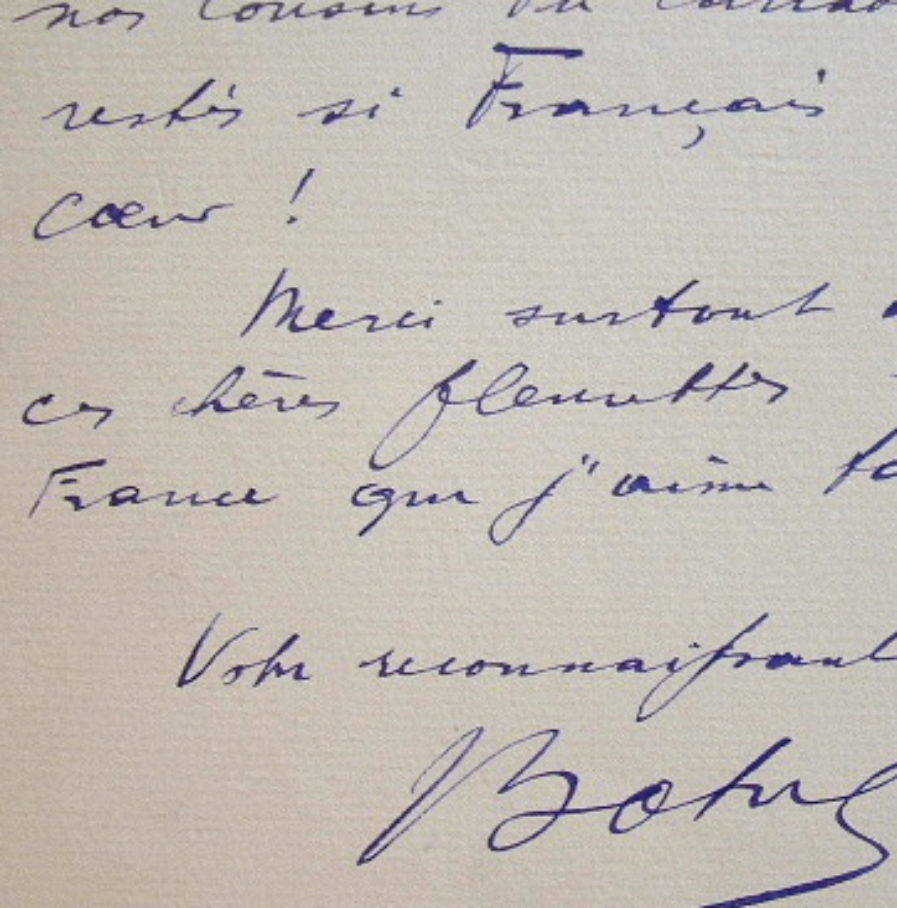 nos cousins du Canada
restés si Français
cœur !
Merci surtout
ces chères fleurettes
France que j'aime
Votre reconnaissant
Botrel